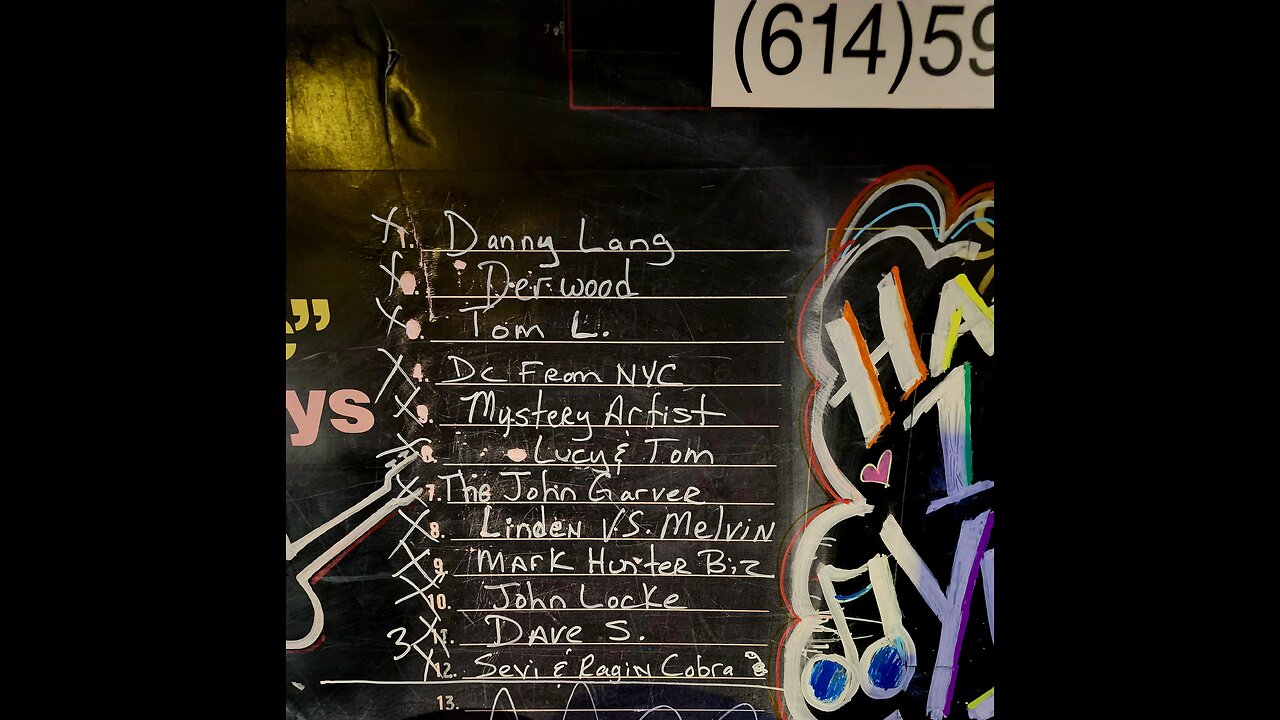 (614)59
X 1. Danny Lang
X Derwood
X Tom L.
X Dc From NYC
X 5. Mystery Artist
X 6. Lucy & Tom
X 7. The John Garver
X 8. Linden VS. Melvin
X 9. Mark Hunter Biz
X 10. John Locke
3 X 11. Dave S.
X 12. Sevi & Ragin Cobra
13.
”
ys
HA
1
Y